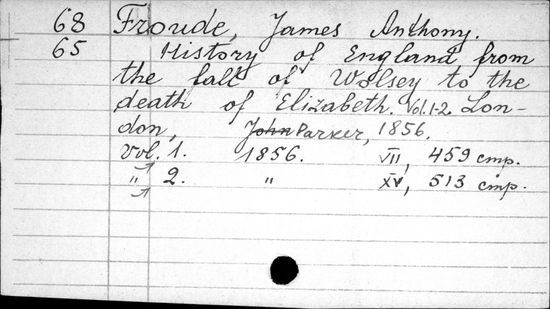 68 Froude, James Anthony.
65 History of England from
the fall of Wolsey to the
death of Elizabeth. Vol. 1-2. Lon-
don, John Parker, 1856.
Vol. 1. 1856. VII, 459 стр.
" 2. " XV, 513 стр.